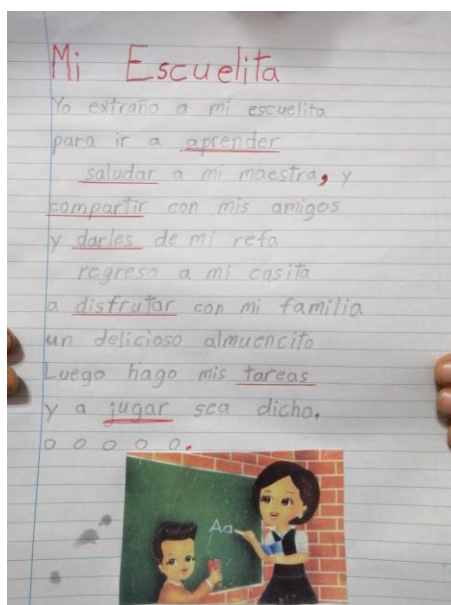 Mi Escuelita
Yo extraño a mi escuelita
para ir a aprender
saludar a mi maestra, y
compartir con mis amigos
y darles de mi refa
regreso a mi casita
a disfrutar con mi familia
un delicioso almuencito
Luego hago mis tareas
y a jugar sea dicho.
o o o o o.
Aa